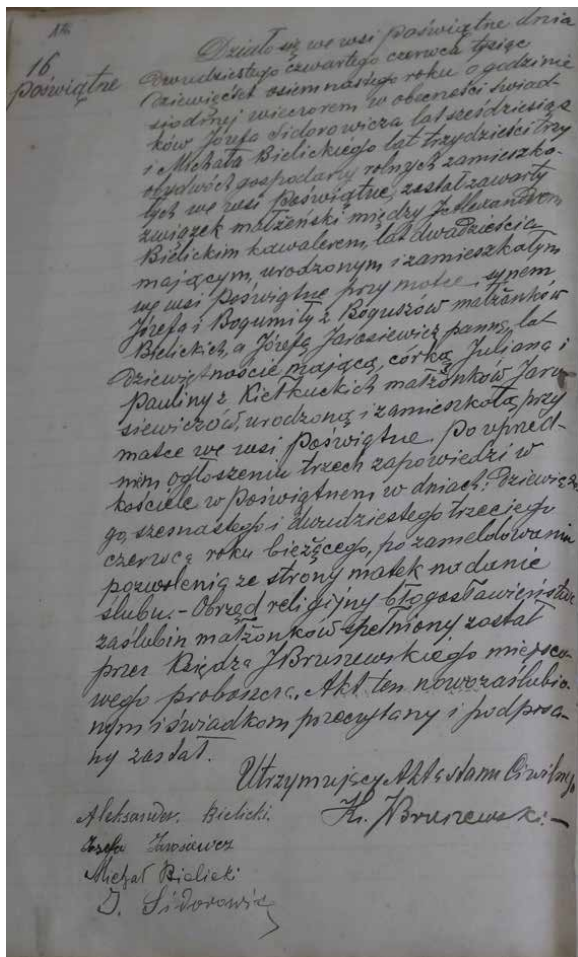 16
Poświątne
Działo się we wsi Poświątne dnia
dwudziestego czwartego czerwca tysiąc
dziewięćset osiemnastego roku o godzinie
siódmej wieczorem w obecności świad-
ków Józefa Sidorowicza lat sześćdziesiąt
i Michała Bielickiego lat trzydzieści trzy
obydwóch gospodarzy rolnych zamieszka-
łych we wsi Poświątne, został zawarty
związek małżeński między Alexandrem
Bielickim kawalerem, lat dwadzieścia
mającym, urodzonym i zamieszkałym
we wsi Poświątne przy matce, synem
Józefa i Bogumiły z Boguszów małżonków
Bielickich, a Józefą Jarosiewicz panną, lat
dziewiętnaście mającą, córką Juliana i
Pauliny z Kiełkuckich małżonków Jaro-
siewiczów, urodzoną i zamieszkałą przy
matce we wsi Poświątne. Po uprzed-
nim ogłoszeniu trzech zapowiedzi w
kościele w Poświątnem w dniach: dziewiąte-
go, szesnastego i dwudziestego trzeciego
czerwca roku bieżącego, po zameldowaniu
pozwolenia ze strony matek na danie
ślubu. - Obrzęd religijny błogosławieństwa
zaślubin małżonków spełniony został
przez Księdza J Bruszewskiego miejsco-
wego proboszcza. Akt ten nowozaślubio-
nym i świadkom przeczytany i podpisa-
ny został.
Utrzymujący Akta stanu Ciwilnego
Ks. J Bruszewski -
Aleksander Bielicki.
Józefa Jarosiewicz
Michał Bielicki
J. Sidorowicz